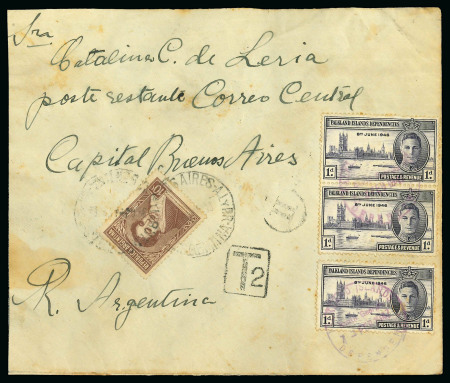 Sra
Catalina C. de Leria
poste restante Correo Central
Capital Buenos Aires
R. Argentina
T2
FALKLAND ISLANDS DEPENDENCIES
8TH JUNE 1946
1d POSTAGE & REVENUE 1d
FALKLAND ISLANDS DEPENDENCIES
8TH JUNE 1946
1d POSTAGE & REVENUE 1d
FALKLAND ISLANDS DEPENDENCIES
8TH JUNE 1946
1d POSTAGE & REVENUE 1d
10